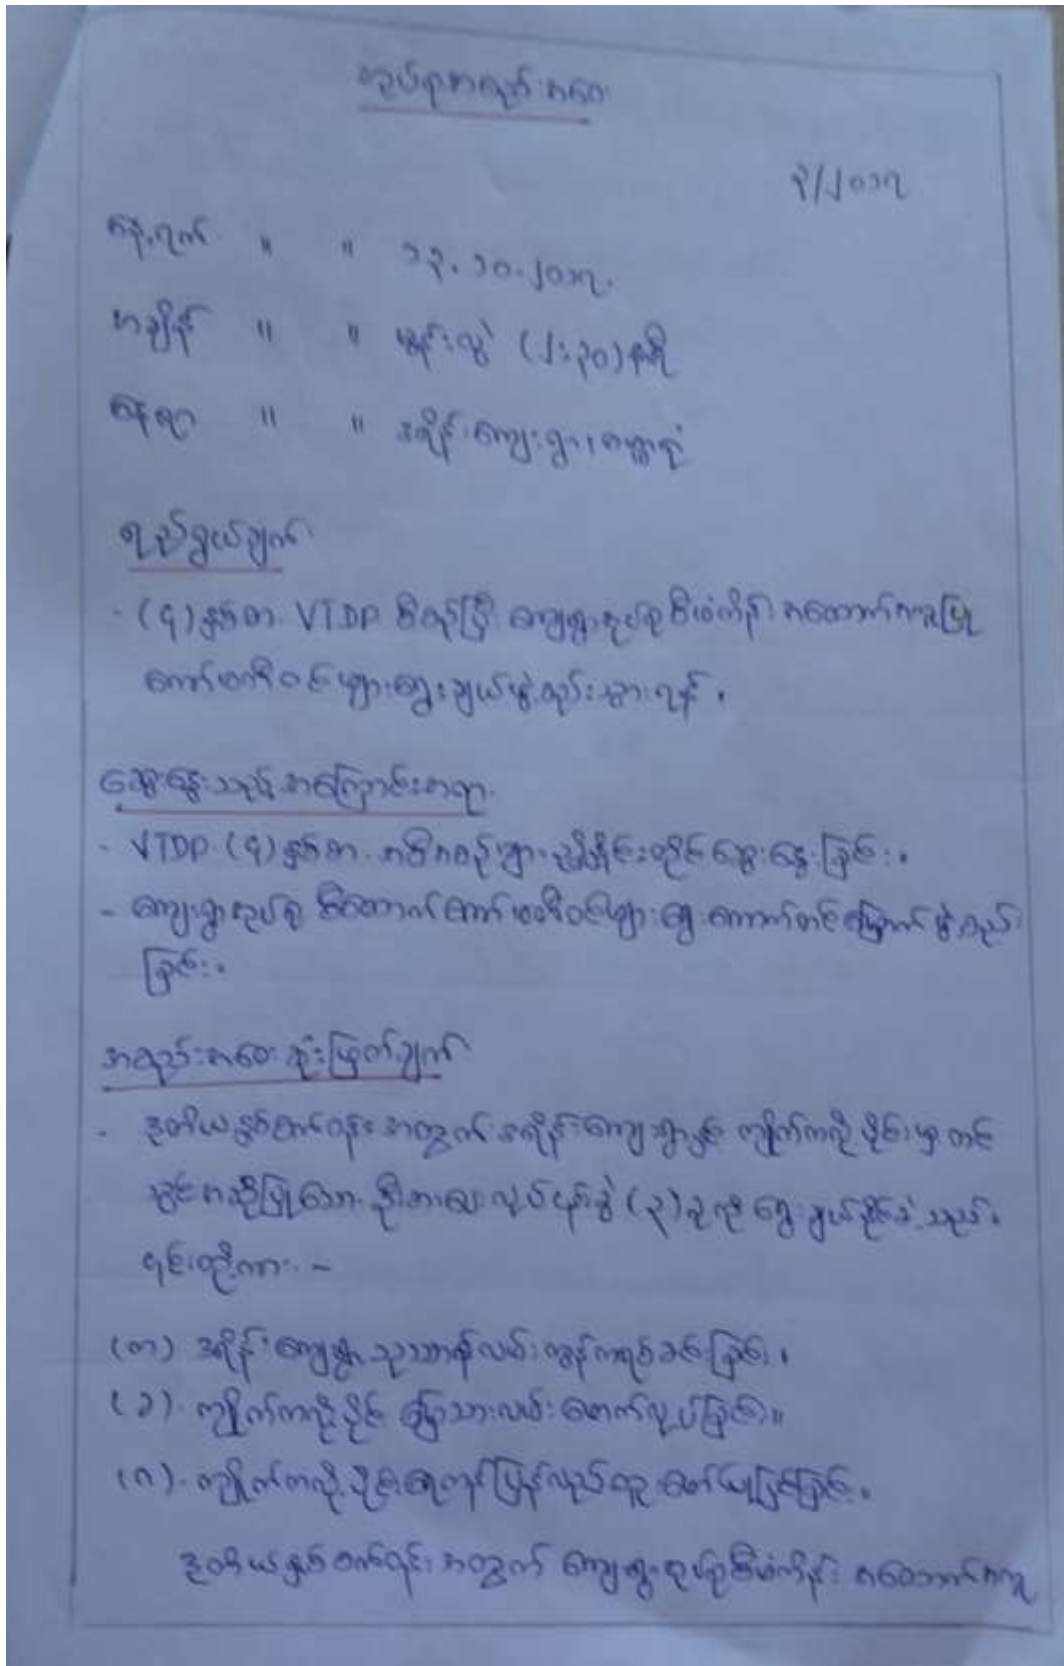 ကျေးရွာအုပ်စုအစည်းအဝေး
၃/၂၀၁၇
နေ့ရက် " " ၁၃.၁၀.၂၀၁၇.
အချိန် " " မွန်းလွဲ (၂:၃၀) နာရီ
နေရာ " " ဒရိန်ကျေးရွာ၊
ရည်ရွယ်ချက်
- (၄) နှစ်တာ VTDP စီစဉ်ပြီး ကျေးရွာအုပ်စုစီမံကိန်း အထောက်အကူပြု
ကော်မတီဝင်များရွေးချယ်ဖွဲ့စည်းသွားရန်.
ဆွေးနွေးသည့်အကြောင်းအရာ
- VTDP (၄) နှစ်တာ အစီအစဉ်များ ညှိနှိုင်းတိုင်ပင်ဆွေးနွေးခြင်း.
- ကျေးရွာအုပ်စု စီထောက်ကော်မတီဝင်များရွေးကောက်တင်မြှောက်ဖွဲ့စည်း
ခြင်း.
အစည်းအဝေးဆုံးဖြတ်ချက်
- ဒုတိယနှစ်စက်ဝန်းအတွက် ဒရိန်ကျေးရွာနှင့် ကျိုက်ကလို့ပိုင်းမှ တင်
သွင်းအဆိုပြုသော ဦးစားပေးလုပ်ငန်းခွဲ (၃) ခုကို ရွေးချယ်နိုင်ခဲ့သည်.
၎င်းတို့ကား -
(က) ဒရိန်ကျေးရွာ သုသာန်လမ်းကွန်ကရစ်ခင်းခြင်း.
(ခ) ကျိုက်ကလို့ပိုင်း မြေသားလမ်းဖောက်လုပ်ခြင်း။
(ဂ) ကျိုက်ကလို့ပိုင်းရေကန်ပြန်လည်တူးဖော်ပြုပြင်ခြင်း.
ဒုတိယနှစ်စက်ဝန်းအတွက် ကျေးရွာအုပ်စုစီမံကိန်း အထောက်အကူ